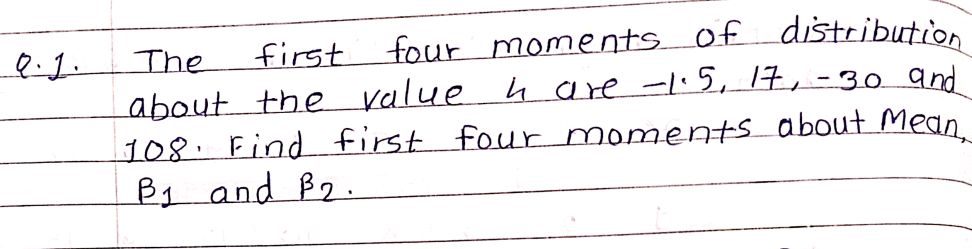 Q.1. The first four moments of distribution
about the value 4 are -1.5, 17, -30 and
108. Find first four moments about Mean,
β1 and β2.